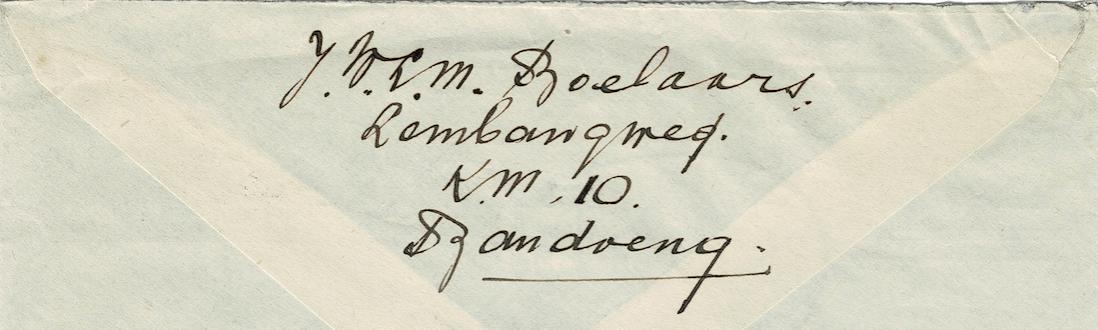 J.W.L.M. Boelaars.
Lembangweg.
K.M. 10.
Bandoeng.